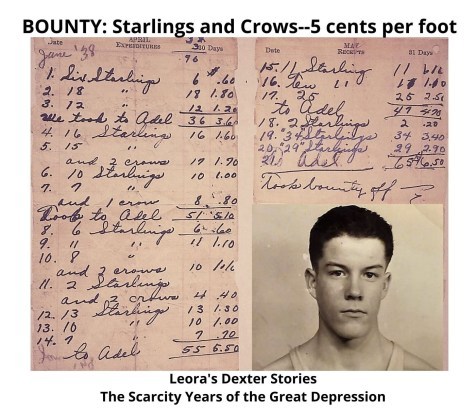 BOUNTY: Starlings and Crows--5 cents per foot
Date APRIL EXPENDITURES 30 Days
June '38
1. Six Starlings 6 .60
2. 18 " 18 1.80
3. 12 " 12 1.20
We took to Adel 36 3.60
4. 16 Starlings 16 1.60
5. 15 "
and 2 crows 17 1.70
6. 10 Starlings 10 1.00
7. 7 "
and 1 crow 8 .80
Took to Adel 51 5.10
8. 6 Starlings 6 .60
9. 11 " 11 1.10
10. 8 "
and 2 crows 10
11. 2 Starlings
and 2 crows 4 .40
12. 13 Starlings 13 1.30
13. 10 " 10 1.00
14. 7 " 7 .70
to Adel 55 5.50
Date MAY RECEIPTS 31 Days
15. 11 Starling 11
16. Ten " 11
17. 25 25 2.50
to Adel 47 4.70
18. 2 Starlings 2 .20
19. "34" Starlings 34 3.40
20. "29" Starlings 29 2.90
21. Adel 65 6.50
Took bounty off
Leora's Dexter Stories
The Scarcity Years of the Great Depression